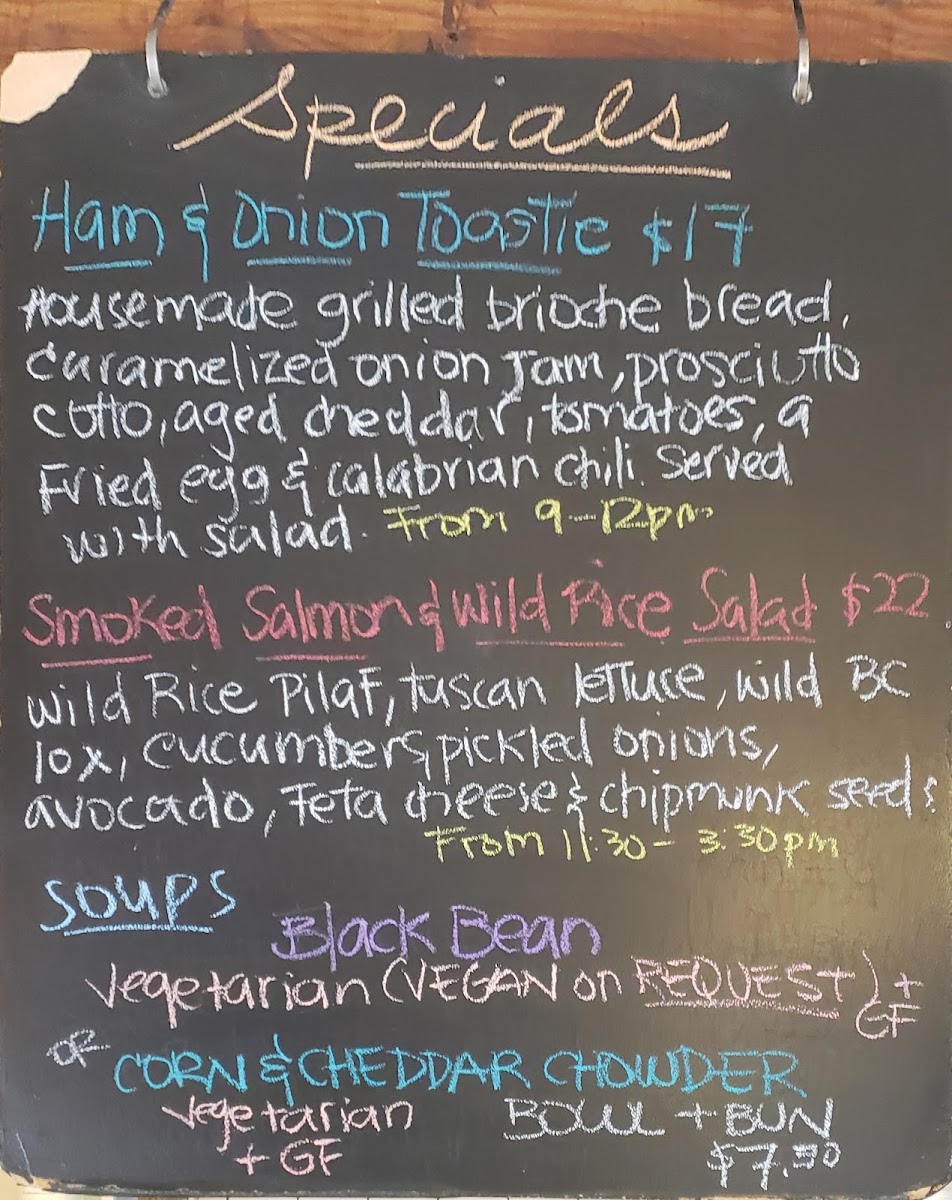 Specials
Ham & Onion Toastie $17
Housemade grilled brioche bread,
caramelized onion jam, prosciutto
cotto, aged cheddar, tomatoes, a
Fried egg & calabrian chili. Served
with salad. From 9-12pm
Smoked Salmon & Wild Rice Salad $22
Wild Rice Pilaf, tuscan lettuce, wild BC
lox, cucumbers, pickled onions,
avocado, Feta cheese & chipmunk seeds
From 11:30 - 3:30pm
SOUPS
Black Bean
Vegetarian (VEGAN on REQUEST) +
GF
OR
CORN & CHEDDAR CHOWDER
Vegetarian BOWL + BUN
+ GF $7.50